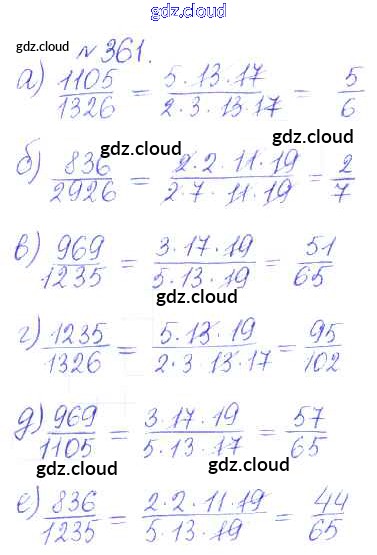 gdz.cloud
№ 361.
gdz.cloud
а) 1105/1326 = 5·13·17/2·3·13·17 = 5/6
gdz.cloud
gdz.cloud
б) 836/2926 = 2·2·11·19/2·7·11·19 = 2/7
gdz.cloud
в) 969/1235 = 3·17·19/5·13·19 = 51/65
gdz.cloud
г) 1235/1326 = 5·13·19/2·3·13·17 = 95/102
gdz.cloud
д) 969/1105 = 3·17·19/5·13·17 = 57/65
gdz.cloud
gdz.cloud
е) 836/1235 = 2·2·11·19/5·13·19 = 44/65
gdz.cloud